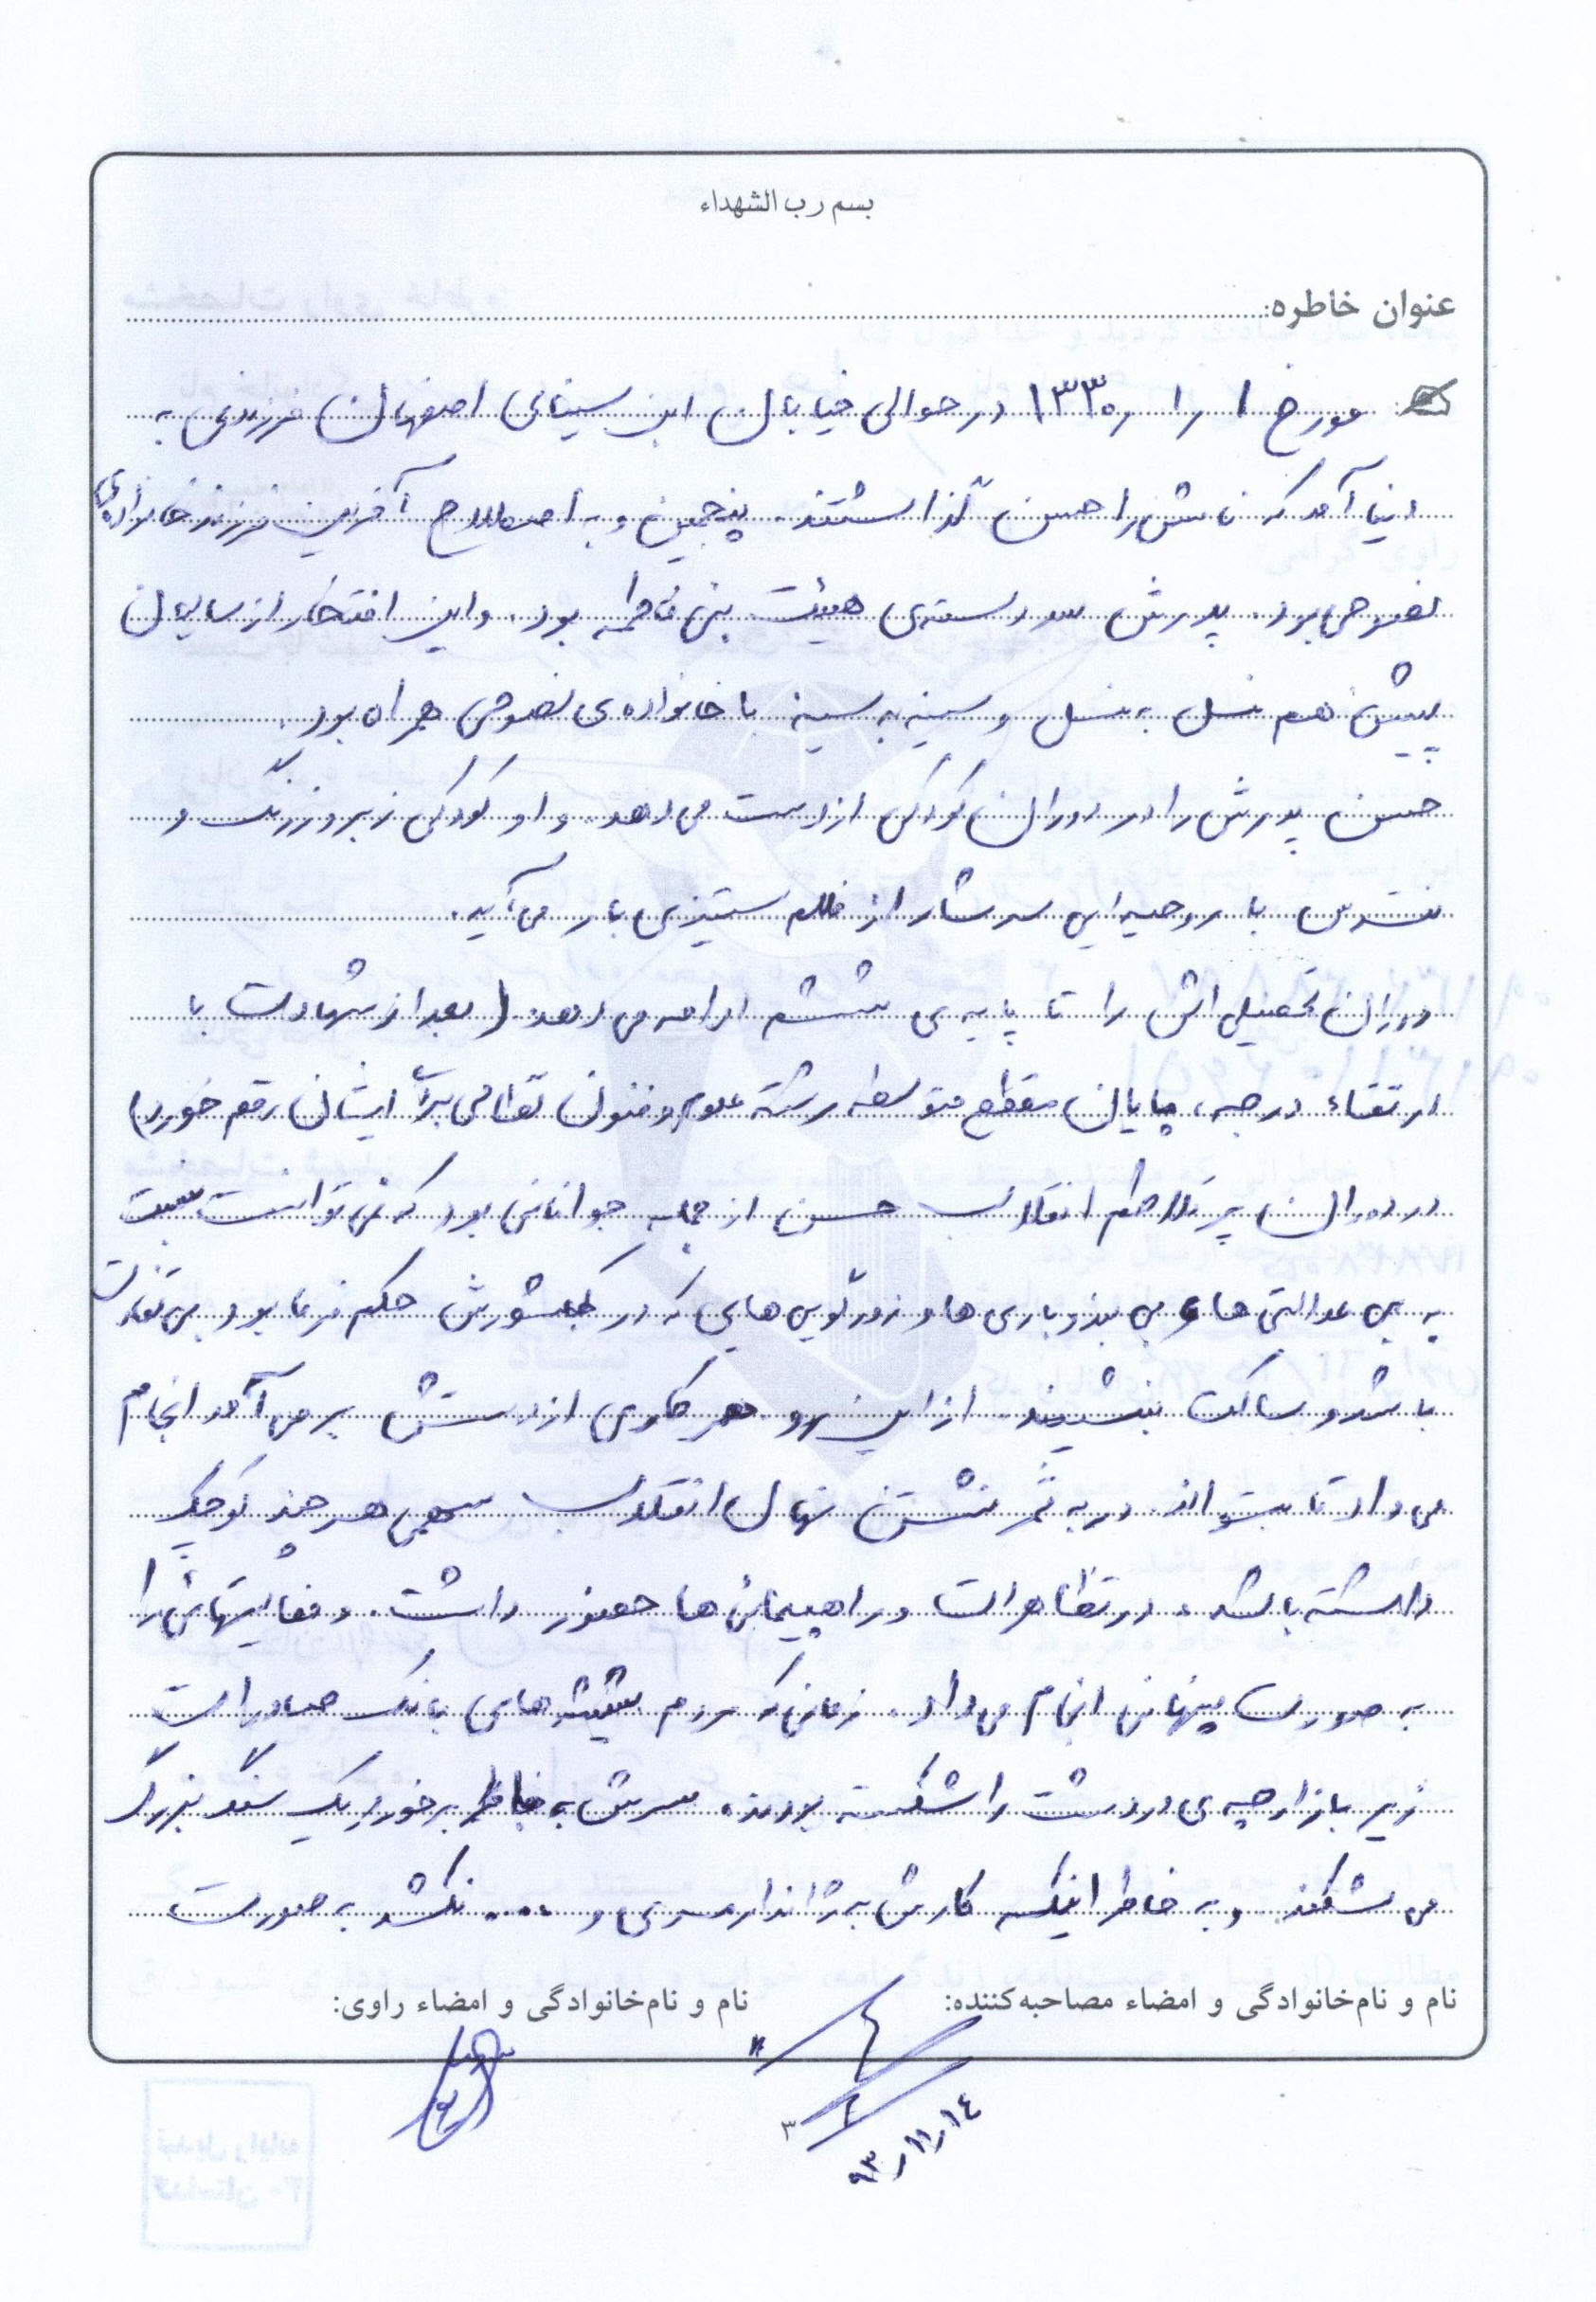 بسم رب الشهداء
عنوان خاطره:
مورخ ۱ ر ۱ ر ۱۳۳۰ در حوالی خیابان ابن سینای اصفهان فرزندی به
دنیا آمد که نامش را حسن گذاشتند. پنجمین و به اصطلاح آخرین فرزند خانواده‌ی
نصوحی بود. پدرش سردسته‌ی هیئت بنی فاطمه بود. و این افتخار از سالیان
پیش هم نسل به نسل و سینه به سینه با خانواده‌ی نصوحی همراه بود.
حسن پدرش را در دوران کودکی از دست می‌دهد. و او کودکی زبر و زرنگ و
نترس با روحیه‌ایی سرشار از ظلم ستیزی بار می‌آید.
دوران تحصیلی‌اش را تا پایه‌ی ششم ادامه می‌دهد. (بعد از شهادت با
ارتقاء درجه، پایان مقطع متوسطه رشته علوم و فنون نظامی برای ایشان رقم خورد)
در دوران پر تلاطم انقلاب حسن از جمله جوانانی بود که نمی‌توانست نسبت
به بی عدالتی ها و بی بندوباری ها و زورگویی هایی که در کشورش حکم فرما بود بی تفاوت
باشد و ساکت بنشیند. از این رو هر کاری از دستش بر می‌آمد انجام
می‌داد تا بتواند در به ثمر نشستن نهال انقلاب سهمی هر چند کوچک
داشته باشد. در تظاهرات و راهپیمائی ها حضور داشت. و فعالیتهایش را
به صورت پنهانی انجام می‌داد. زمانی که مردم شیشه‌های بانک صادرات
زیر بازارچه‌ی دردشت را شکسته بودند. سرش به خاطر برخورد یک سنگ بزرگ
می‌شکند و به خاطر اینکه کارش به ژاندارمری و .... نکشد به صورت
نام و نام‌خانوادگی و امضاء مصاحبه‌کننده: نام و نام‌خانوادگی و امضاء راوی:
۳
۹۳٫۱۱٫۱۴